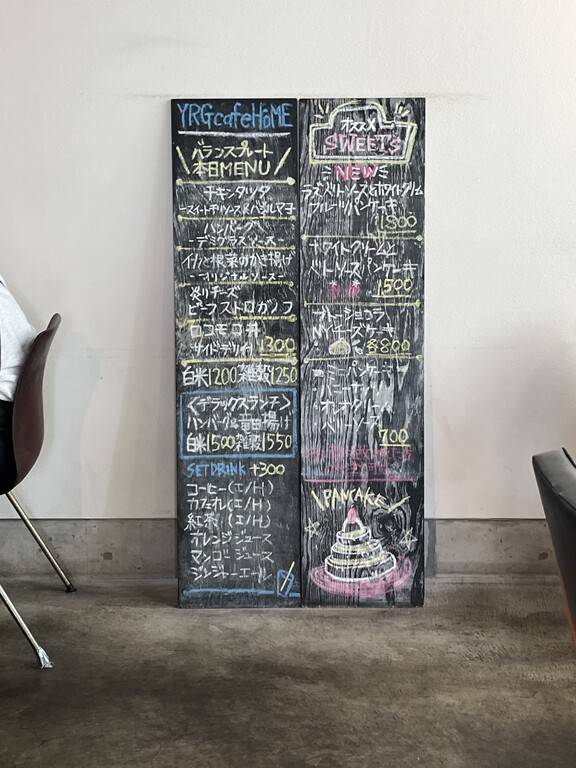 YRGcafeHOME
バランスプレート
本日MENU
チキンタツタ
ハンバーグ
ーデミグラスソースー
イカと根菜のかき揚げ
ーオリジナルソースー
炙りチーズ
ビーフストロガノフ
ロコモコ丼
サイドデリ付 1300
白米1200 雑穀1250
<デラックスランチ>
ハンバーグ&竜田揚げ
白米1500 雑穀1550
SET DRINK +300
コーヒー(I/H)
カフェオレ(I/H)
紅茶(I/H)
オレンジジュース
マンゴージュース
ジンジャーエール
オススメ
SWEETS
NEW
フルーツパンケーキ
1800
ホワイトクリームと
ベリーソースパンケーキ
1500
ガトーショコラ
NYチーズケーキ
各800
ミニパンケーキ
バニラ
オレオクリーム
ベリーソース
700
PANCAKE